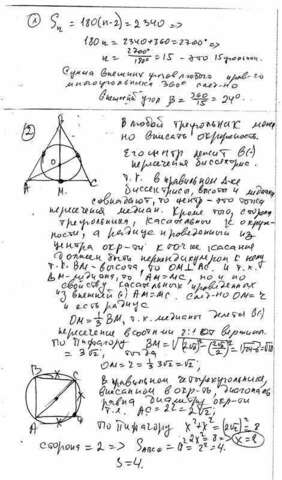 ① Sn = 180(n-2) = 2340 =>
180n = 2340+360 = 2700° =>
n = 2700°/180° = 15 - это 15угольн.
Сумма внешних углов любого прав-го
многоугольника 360° след-но
внешний угол β = 360/15 = 24°.
②
В любой треугольник можно
вписать окружность.
Его центр лежит в (·)
пересечения биссектрис.
Т.к. в правильном Δ-ке
биссектрисы, высоты и медианы
совпадают, то центр - это точка
пересечения медиан. Кроме того, стороны
треугольника, касательные к окруж-
ности, а радиус проведенный из
центра окр-ти к точке касания
должен быть перпендикулярен к ней
т.к. BM - высота, то OM⊥AC. И т.к.
BM - медиана, то AM=MC, но и по
свойству касательных проведенных
из внешней (·) AM=MC. След-но OM=r
и есть радиус
OM = 1/3 BM, т.к. медианы делятся в (·)
пересечения в соотнош 2:1 от вершины.
По Пифагору BM =
= 3√2, тогда
OM = r = 1/3 3√2 = √2.
В правильном четырехугольнике,
вписанном в окр-ть, диагональ
равна диаметру окр-ти
т.е. AC = 2r = 2√2;
По Пифагору x²+x² = (2√2)² = 8
2x² = 8 => x = 8
сторона = 2 => S = a² = 2² = 4.
S = 4.
B
C
A
M
O
B
C
A
D
x